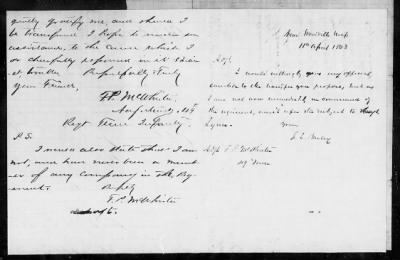 gently gratify me, and should I
be transferred I hope to render some
assistance to the cause which I
so cheerfully espoused in its
trouble Respectfully &c
Your Friend
F. P. McWhirter
Regt Tenn Infantry
P. S.
I would also state that I am
not, and have never been a mem
ber of any company in the Reg
iment.
Resply
F. P. McWhirter
Near Miss
11th April 1863
Adjt
I would willingly give my official
sanction to the transfer you propose, but as
I am not now immediately in command of
the regiment, would refer the subject to
Lynch.
Your
Adjt F. P. McWhirter
Tenn